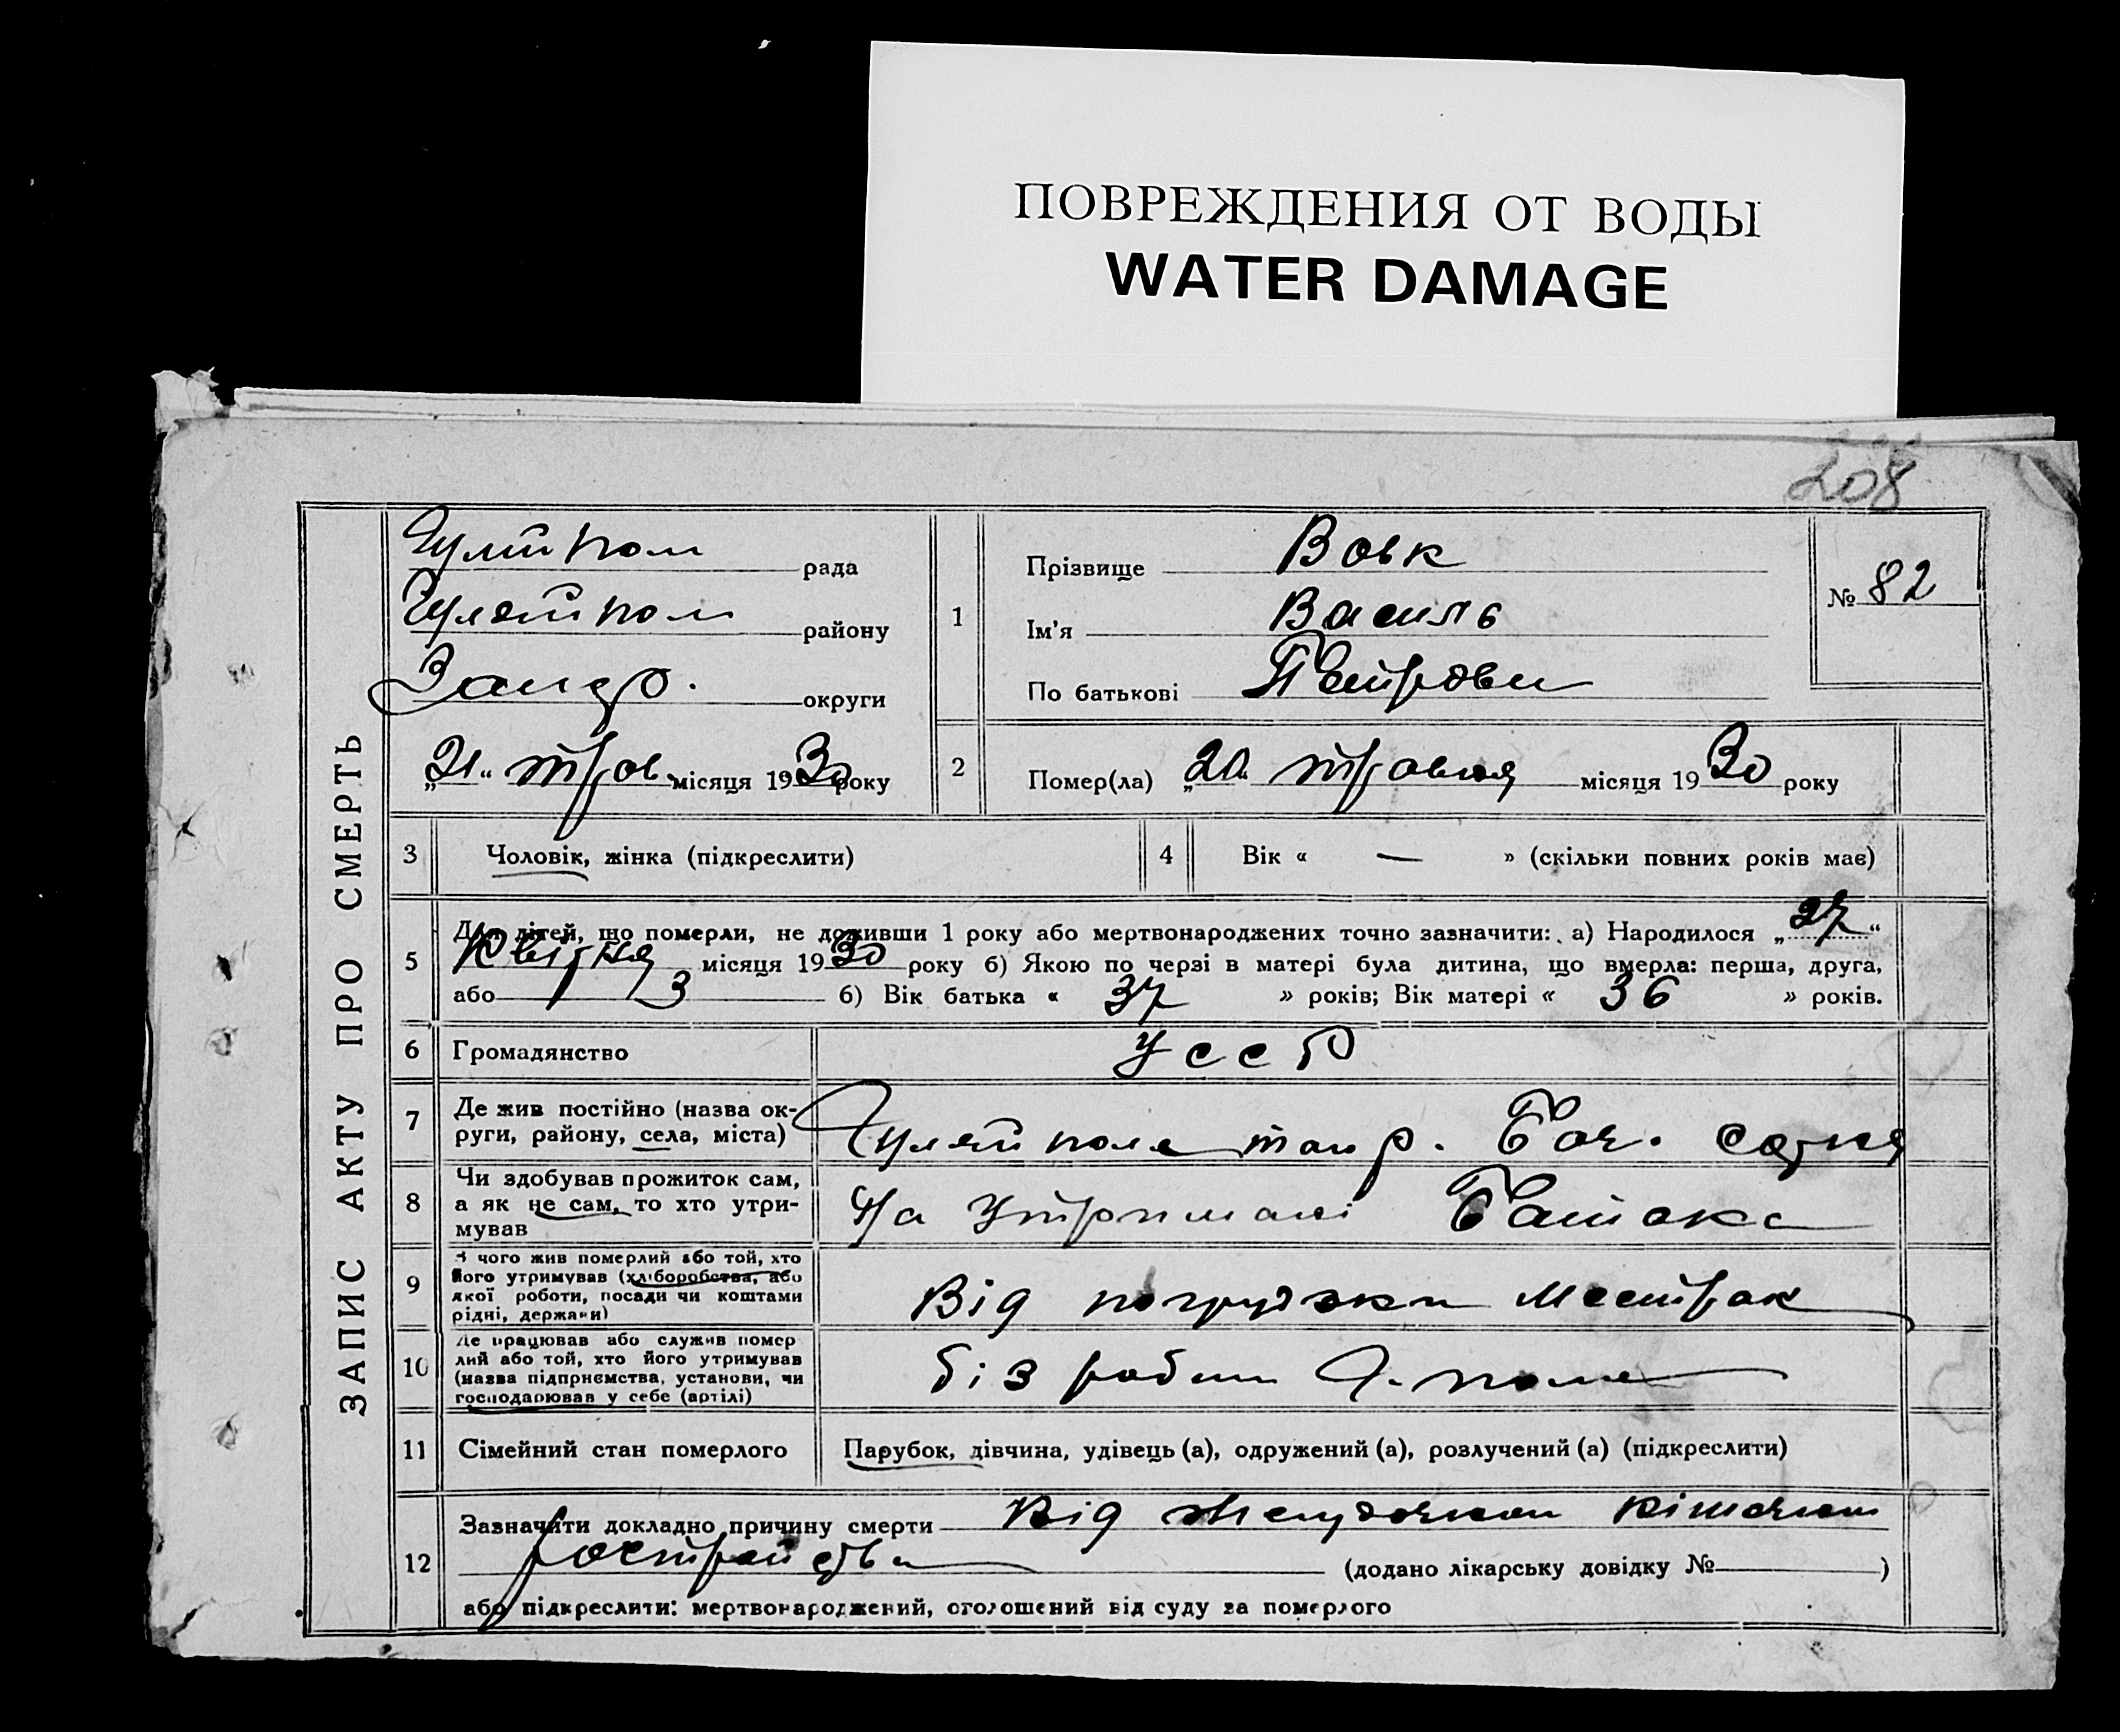 ПОВРЕЖДЕНИЯ ОТ ВОДЫ
WATER DAMAGE
208
ЗАПИС АКТУ ПРО СМЕРТЬ
Гуляйпол рада
Гуляйпол району
Запор. округи
„21“ трав. місяця 1930 року
1
Прізвище Вовк
Ім'я Василь
По батькові Петрови
№ 82
2
Помер(ла) „20“ травня місяця 1930 року
3
Чоловік, жінка (підкреслити)
4
Вік « — » (скільки повних років має)
5
Для дітей, що померли, не доживши 1 року або мертвонароджених точно зазначити: а) Народилося „27“
Квітня місяця 1930 року б) Якою по черзі в матері була дитина, що вмерла: перша, друга,
або 3 б) Вік батька « 37 » років; Вік матері « 36 » років.
6
Громадянство
УССР
7
Де жив постійно (назва ок-
руги, району, села, міста)
Гуляйполе
8
Чи здобував прожиток сам,
а як не сам, то хто утри-
мував
На утримані Батька
9
З чого жив померлий або той, хто
його утримував (хліборобства, або
якої роботи, посади чи коштами
рідні, держави)
Від
10
Де працював або служив помер
лий або той, хто його утримував
(назва підприємства, установи, чи
господарював у себе (артілі)
біз работи Г. поле
11
Сімейний стан померлого
Парубок, дівчина, удівець (а), одружений (а), розлучений (а) (підкреслити)
12
Зазначити докладно причину смерти Від желудочном кішечном
росстройства (додано лікарську довідку № )
або підкреслити: мертвонароджений, оголошений від суду за померлого